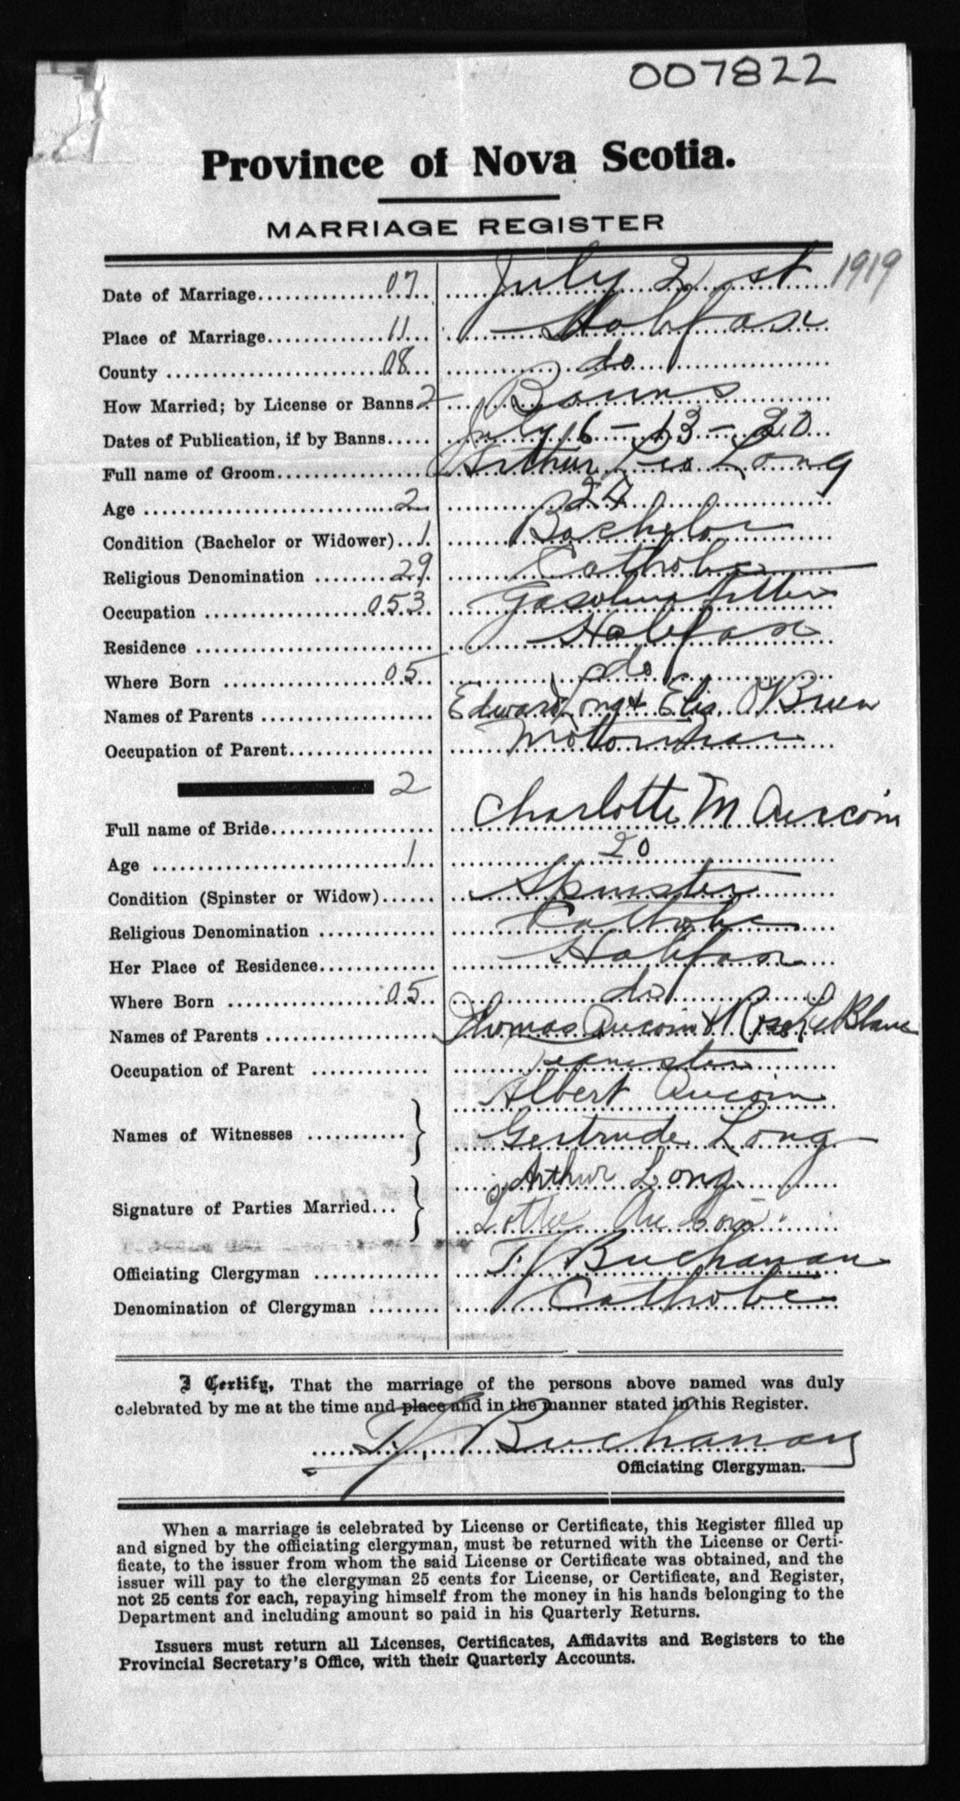 007822
Province of Nova Scotia.
MARRIAGE REGISTER
Date of Marriage 07 July 21st 1919
Place of Marriage 11 Halifax
County 08 do
How Married; by License or Banns 2 Banns
Dates of Publication, if by Banns July 6 - 13 - 20
Full name of Groom Arthur Leo Long
Age 2 24
Condition (Bachelor or Widower) 1 Bachelor
Religious Denomination 29 Catholic
Occupation 053 Gasoline fitter
Residence Halifax
Where Born 05 do
Names of Parents Edward Long & Elis. O'Brien
Occupation of Parent Motorman
2
Full name of Bride Charlotte M Aucoin
Age 1 20
Condition (Spinster or Widow) Spinster
Religious Denomination Catholic
Her Place of Residence Halifax
Where Born 05 do
Names of Parents Thomas Aucoin & Rose LeBlanc
Occupation of Parent Teamster
Albert Aucoin
Names of Witnesses
Gertrude Long
Arthur Long
Signature of Parties Married
Lottie Aucoin
Officiating Clergyman T. J Buchanan
Denomination of Clergyman Catholic
I Certify, That the marriage of the persons above named was duly
celebrated by me at the time and place and in the manner stated in this Register.
T. J. Buchanan
Officiating Clergyman.
When a marriage is celebrated by License or Certificate, this Register filled up
and signed by the officiating clergyman, must be returned with the License or Certi-
ficate, to the issuer from whom the said License or Certificate was obtained, and the
issuer will pay to the clergyman 25 cents for License, or Certificate, and Register,
not 25 cents for each, repaying himself from the money in his hands belonging to the
Department and including amount so paid in his Quarterly Returns.
Issuers must return all Licenses, Certificates, Affidavits and Registers to the
Provincial Secretary's Office, with their Quarterly Accounts.